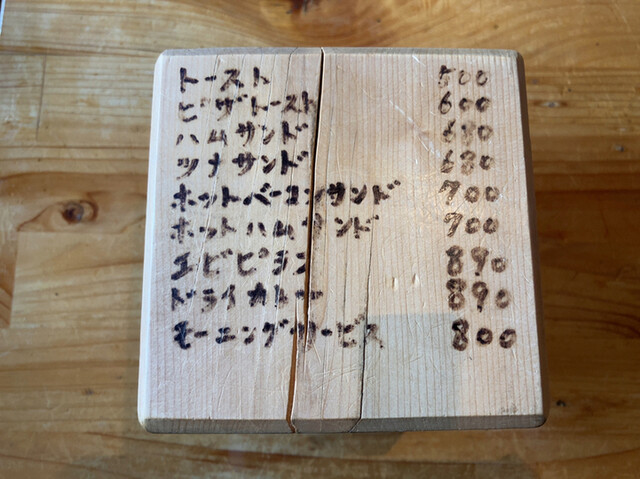 トースト 500
ピザトースト 600
ハムサンド 680
ツナサンド 680
ホットベーコンサンド 700
ホットハムサンド 700
エビピラフ 890
ドライカレー 890
モーニングサービス 800